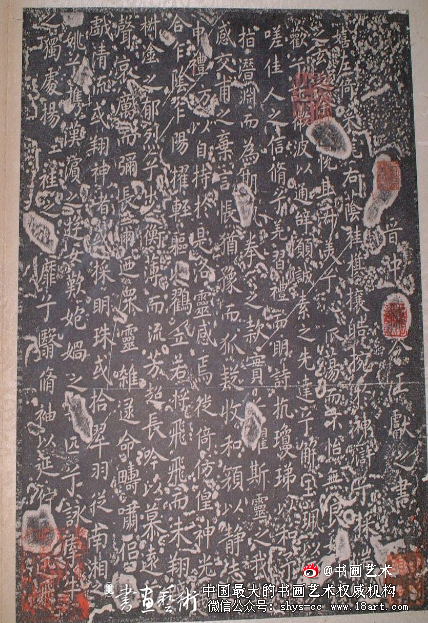 晉中令王獻之書
嬉左倚采旄右蔭桂旗攘皓捥於神滸兮採
之玄芝余情悅其淑美兮心振蕩而不怡無良
歡兮微波以通辭願誠素之先達兮解玉珮
嗟佳人之信脩兮羌習禮而明詩抗瓊珶
指潛淵而為期執拳之款實兮懼斯靈之我
感交甫之棄言悵猶豫而狐疑收和顏以靜志
申禮防以自持於是洛靈感焉徙倚仿偟神光
合乍陰乍陽擢輕軀以鶴立若將飛而未翔
椒塗之郁烈兮步衡薄而流芳超長吟以慕遠
聲哀厲而彌長爾迺衆靈雜遝命疇嘯侶
戲清流或翔神渚或採明珠或拾翠羽從南湘之
姚兮攜漢濱之遊女歎媧之無匹兮詠牽牛
之獨處揚輕袿之猗靡兮翳脩袖以延佇
@书画艺术
書畫藝術 中国最大的书画艺术权威机构
微信公众号：shys-cc www.18art.com